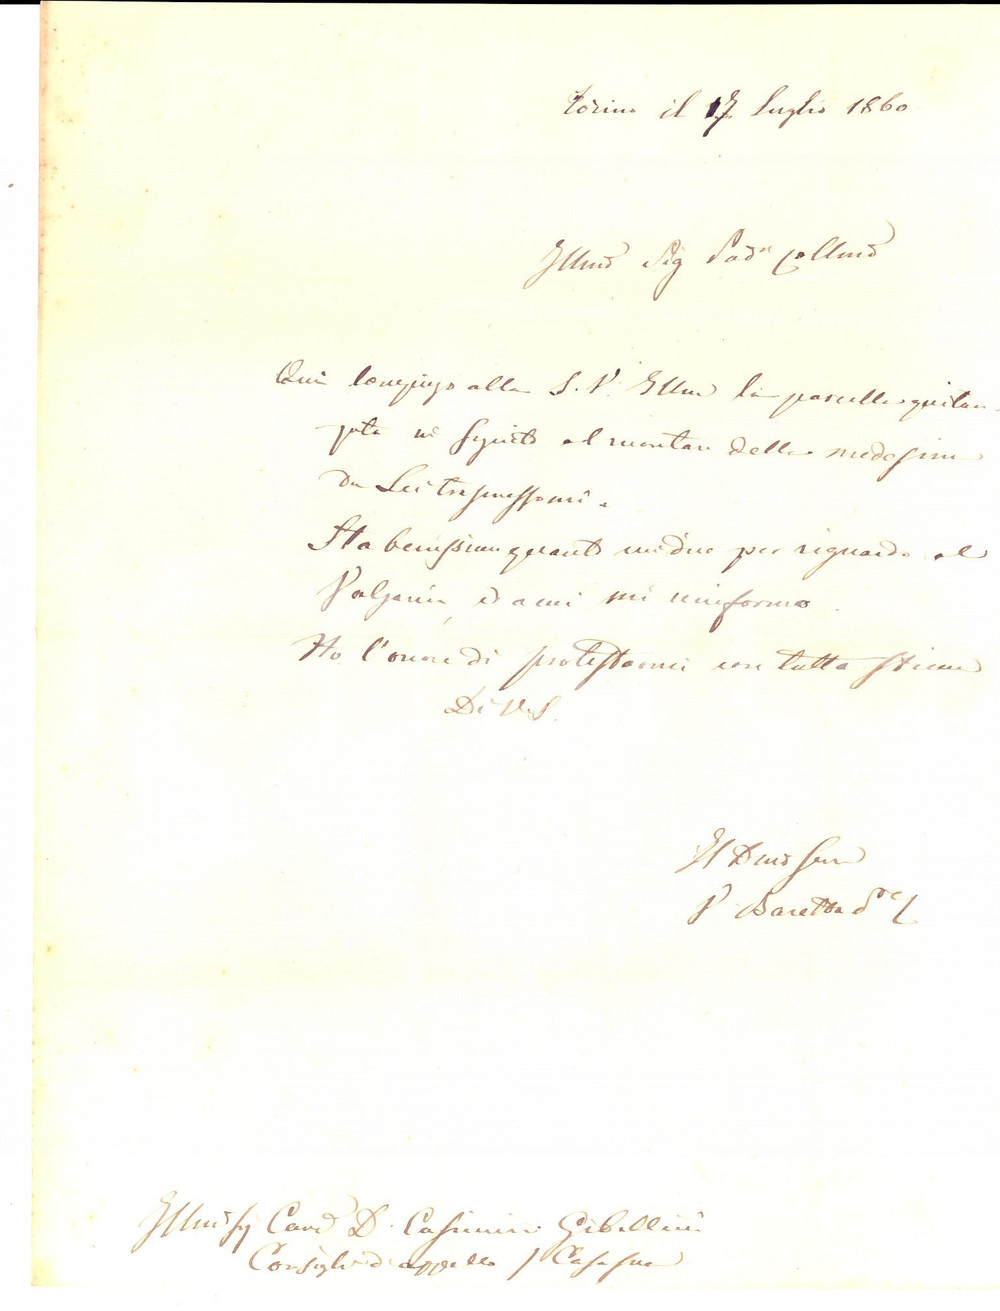 Torino il 17 Luglio 1860
Illmo Sig Padn Collmo
Qui compiego alla S. V. Illma la parcella quitan-
zata in seguito al montare della medesima
da Lei trasmessomi.
Sta benissimo quanto mi dice per riguardo al
ed a cui mi uniformo
Ho l'onore di protestarmi con tutta stima
Di V. S.
Il Dmo Serv
P Baretta
Illmo Sig Cavo D. Casimiro Gibellini
Consigliere d'appello / Casa sua